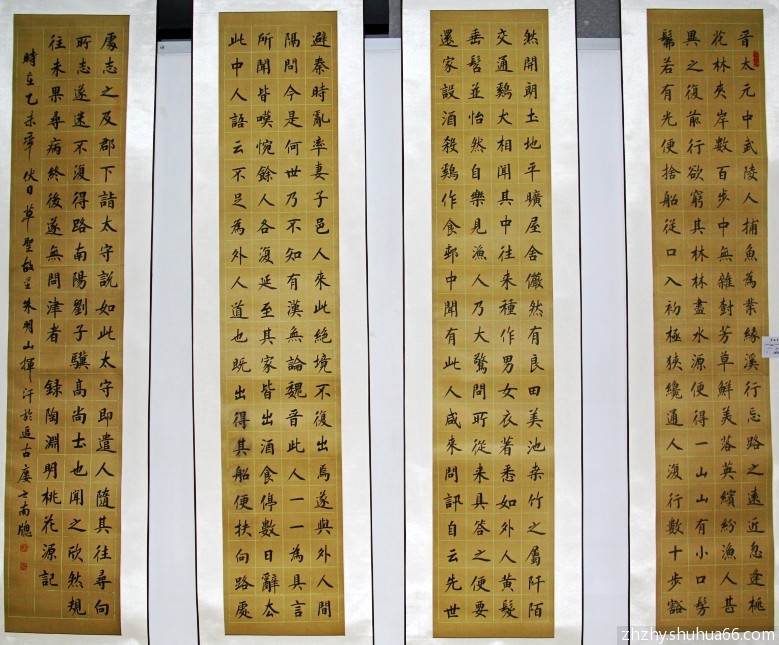 晋太元中武陵人捕魚為業緣溪行忘路之遠近忽逢桃
花林夾岸數百步中無雜樹芳草鮮美落英繽紛漁人甚
異之復前行欲窮其林林盡水源便得一山山有小口髣
髴若有光便捨船從口入初極狹纔通人復行數十步豁
然開朗土地平曠屋舍儼然有良田美池桑竹之屬阡陌
交通鷄犬相聞其中往来種作男女衣著悉如外人黄髮
垂髫並怡然自樂見漁人乃大驚問所從来具答之便要
還家設酒殺鷄作食邨中聞有此人咸来問訊自云先世
避秦時亂率妻子邑人来此絕境不復出焉遂與外人間
隔問今是何世乃不知有漢無論魏晋此人一一為具言
所聞皆嘆惋餘人各復延至其家皆出酒食停數日辭去
此中人語云不足為外人道也既出得其船便扶向路處
處志之及郡下詣太守說如此太守即遣人隨其往尋向
所志遂迷不復得路南陽劉子驥高尚士也聞之欣然規
往未果尋病終後遂無問津者 録陶淵明桃花源記
時在乙未年伏日草聖故里朱明山揮汗於追古廔之南牕
zhzhy.shuhua66.com